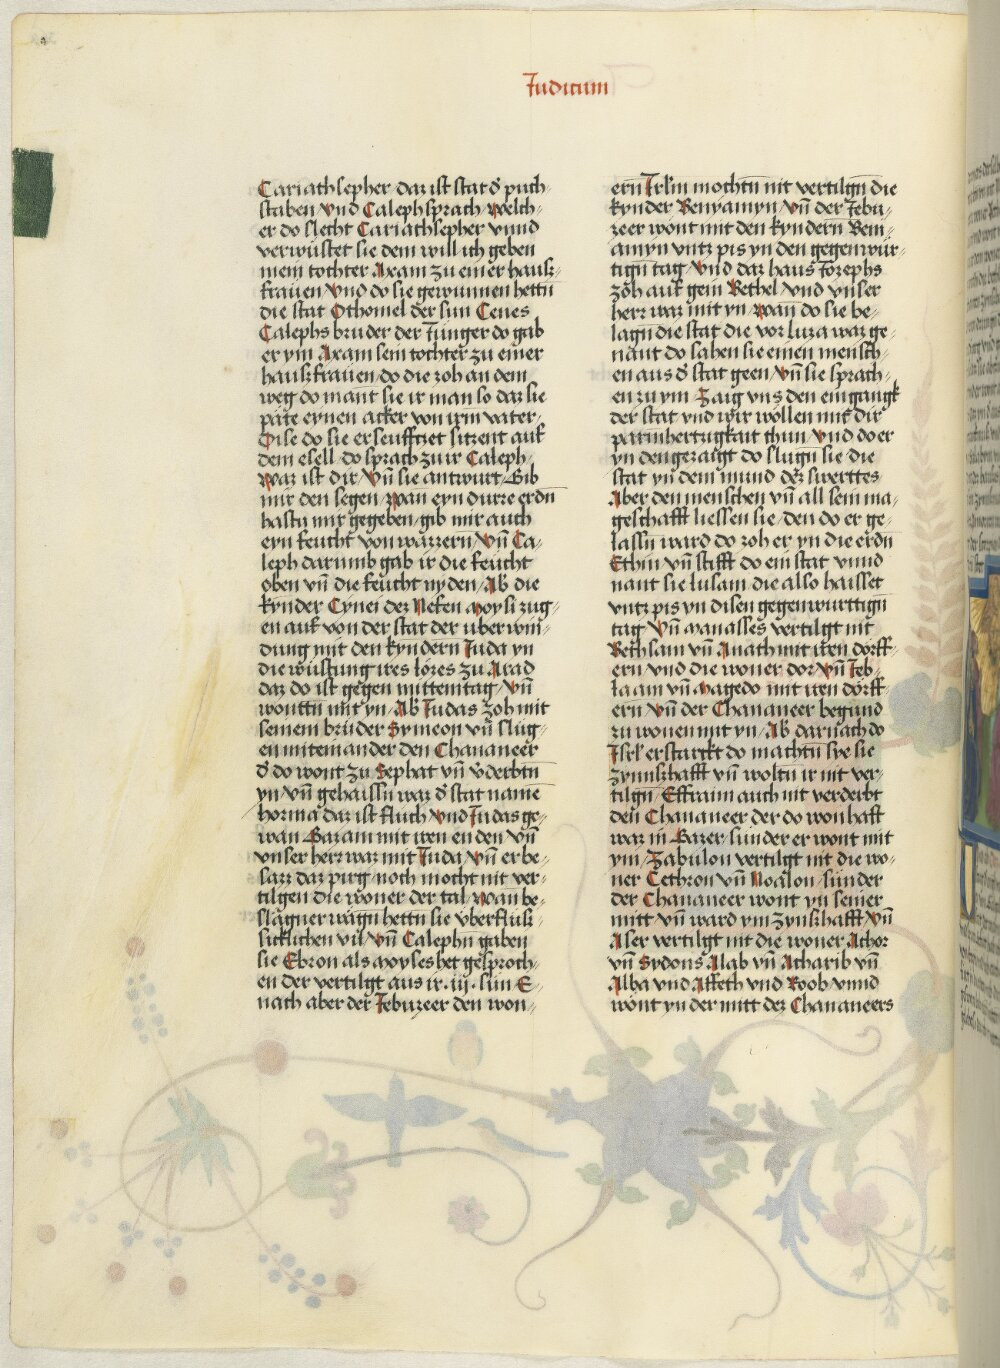 Judicum
Cariathsepher / daz ist stat d̕ puch⸗
staben / vnd Caleph sprach / welch⸗
er do slecht Cariathsepher vnnd
verwüstet sie dem will ich geben
mein tochter Axam zu einer hauß⸗
frauen / vnd do sie gewunnen hettn̄
die stat Othomel der sun Cenes
Calephs bruder der Jünger do gab
er ym Axam sein tochter zu einer
haußfrauen / do die zoh an dem
weg do mant sie ir man so daz sie
päte eynen acker von irm vater /
Dise do sie erseufftzet sitzent auf
dem esell / do sprach zu ir Caleph /
Waz ist dir / vn̄ sie antwurt / Gib
mir den segen / wan eyn durre erdn̄
hastu mir gegeben / gib mir auch
eyn feucht von wazzern / vn̄ Ca⸗
leph darumb gab ir die feucht
oben vn̄ die feucht nyden / Ab die
kynder Cynei dez Nefen moysi zug⸗
en auf von der stat der uberwin⸗
dung mit den kyndern Juda yn
die wüstung ires lözes zu Arad
daz do ist gegen mittemtag / vn̄
wontn̄ mit yn / Ab Judas zoh mit
seinem brüder Symeon vn̄ slug⸗
en miteinander den Chananeer
d̕ do wont zu Sephat vn̄ v̕derbtn̄
yn / vn̄ gehaissn̄ waz d̕ stat name
horma daz ist fluch / vnd Judas ge⸗
wan Gazam mit iren enden / vn̄
vnser herr waz mit Juda / vn̄ er be⸗
sazz daz pirg / noch mocht nit ver⸗
tilgen die woner der tal / wan be⸗
slagner wagn̄ hettn̄ sie vberfluß⸗
sicklichen vil / vn̄ Calephn̄ gaben
sie Ebron als moyses het gesproch⸗
en der vertilgt aus ir · iij · sun E⸗
nach aber der Jebuzeer den won⸗
ern̄ Jrl̄m mochtn̄ nit vertilgn̄ die
kynder Benyamyn / vn̄ der Jebu⸗
zeer wont mit den kyndern Ben⸗
amyn vntz pis yn den gegenwür⸗
tign̄ tag / vnd daz haus Jozephs
zoh auf gein Bethel / vnd vnser
herr waz mit yn / wan̄ do sie be⸗
lagn̄ die stat die vor luza waz ge⸗
nant do sahen sie einen mensch⸗
en aus d̕ stat geen / vn̄ sie sprach⸗
en zu ym / Zaig vns den eingangk
der stat vnd wir wöllen mit dir
parmhertzigkait thun / vnd do er
yn den gezaigt do slugn̄ sie die
stat yn dem mund dez swerttes
Aber den menschen vn̄ all sein ma⸗
geschafft liessen sie / den do er ge⸗
lassn̄ ward do zoh er yn die erdn̄
Ethin vn̄ stifft do ein stat vnnd
nant sie lusam / die also haisset
vntz pis yn disen gegenwurttign̄
tag / vn̄ manasses vertilgt nit
Bethsam vn̄ Anath mit iren dorff⸗
ern / vnd die woner dor / vn̄ Jeb⸗
laam vn̄ magedo mit iren dörff⸗
ern / vn̄ der Chananeer begund
zu wonen mit yn / Ab darnach do
Jsrl̄ erstarckt do machtn̄ sye sie
zynnßhafft vn̄ woltn̄ ir nit ver⸗
tilgn̄ / Effraim auch nit verderbt
den Chananeer der do wonhaft
waz in Gazer / sunder er wont mit
ym / Zabulon vertilgt nit die wo⸗
ner Cethron vn̄ Noalon / sunder
der Chananeer wont yn seiner
mitt vn̄ ward ym zynßhafft / vn̄
Aser vertilgt nit die woner Achor
vn̄ Sydons Alab vn̄ Atharib vn̄
Alba vnd Affeth vnd Roob vnnd
wont yn der mitt dez Chananeers